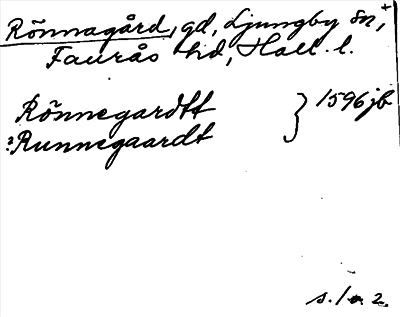 Rönnagård, gd, Ljungby sn,+
Faurås hd, Hall. l.
Rönnegardtt } 1596 jb
?Runnegaardt
s. 1 o. 2.